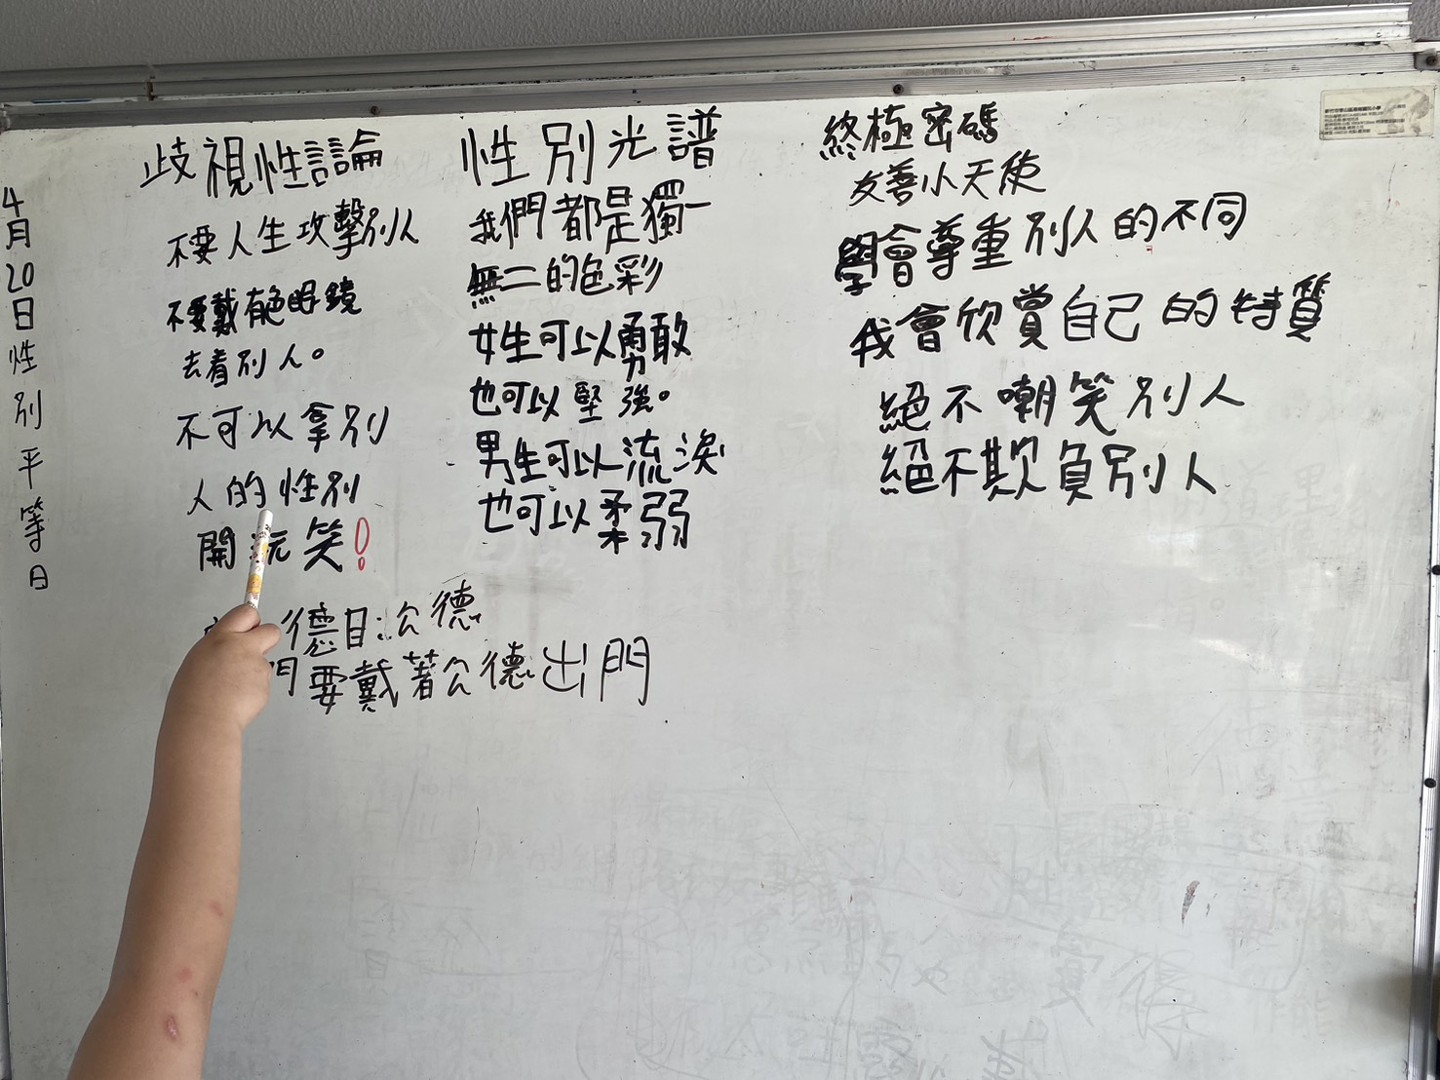 4月20日性別平等日
歧視性言論
不要人生攻擊別人
不要戴有色眼鏡
去看別人。
不可以拿別
人的性別
開玩笑!
德目:公德
門要戴著公德出門
性別光譜
我們都是獨一
無二的色彩
女生可以勇敢
也可以堅強。
男生可以流淚
也可以柔弱
終極密碼
友善小天使
學會尊重別人的不同
我會欣賞自己的特質
絕不嘲笑別人
絕不欺負別人